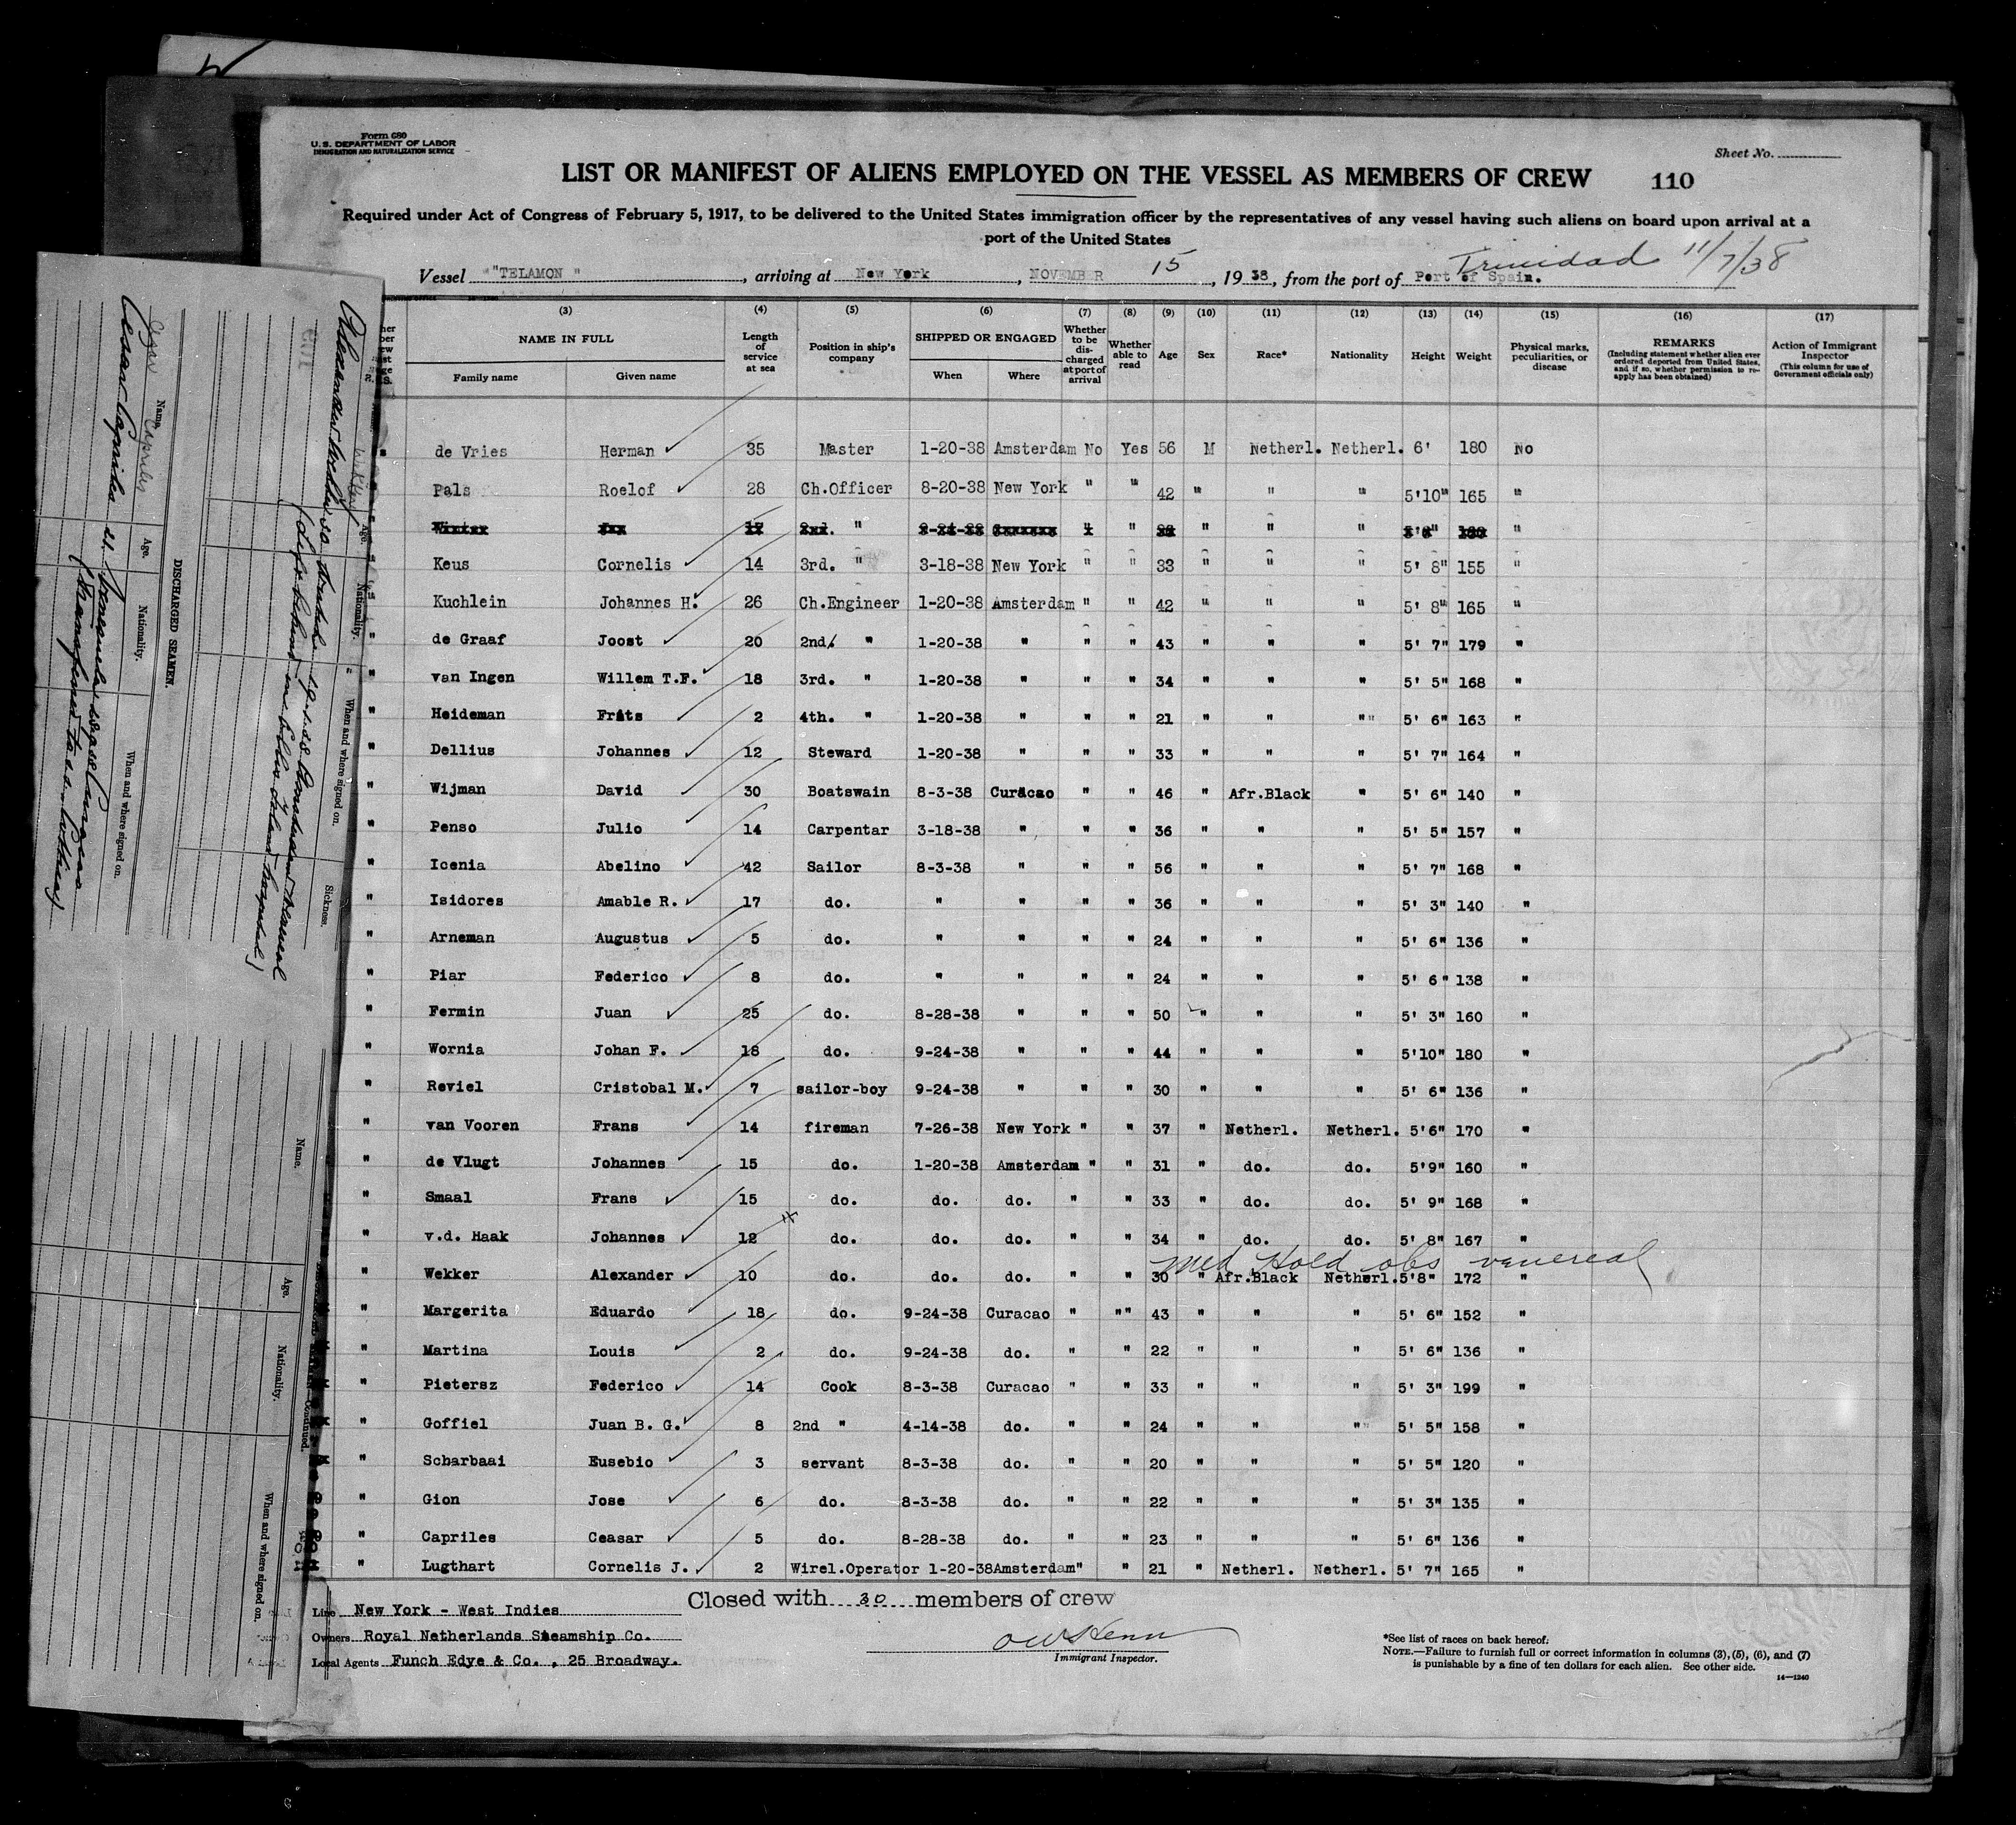 Form 680
U. S. DEPARTMENT OF LABOR
IMMIGRATION AND NATURALIZATION SERVICE
Sheet No.
LIST OR MANIFEST OF ALIENS EMPLOYED ON THE VESSEL AS MEMBERS OF CREW 110
Required under Act of Congress of February 5, 1917, to be delivered to the United States immigration officer by the representatives of any vessel having such aliens on board upon arrival at a
port of the United States
Vessel "TELAMON", arriving at New York, NOVEMBER 15, 1938, from the port of Port of Spain. Trinidad 11/7/38
(3) (4) (5) (6) (7) (8) (9) (10) (11) (12) (13) (14) (15) (16) (17)
NAME IN FULL Length of service at sea Position in ship's company SHIPPED OR ENGAGED Whether to be discharged at port of arrival Whether able to read Age Sex Race* Nationality Height Weight Physical marks, peculiarities, or disease REMARKS (Including statement whether alien ever ordered deported from United States, and if so, whether permission to reapply has been obtained) Action of Immigrant Inspector (This column for use of Government officials only)
Family name Given name When Where
de Vries Herman 35 Master 1-20-38 Amsterdam No Yes 56 M Netherl. Netherl. 6' 180 No
Pals Roelof 28 Ch.Officer 8-20-38 New York " " 42 " " " 5'10" 165 "
2nd. " " " " " "
Keus Cornelis 14 3rd. " 3-18-38 New York " " 33 " " " 5' 8" 155 "
Kuchlein Johannes H. 26 Ch.Engineer 1-20-38 Amsterdam " " 42 " " " 5' 8" 165 "
de Graaf Joost 20 2nd. " 1-20-38 " " " 43 " " " 5' 7" 179 "
" van Ingen Willem T.F. 18 3rd. " 1-20-38 " " " 34 " " " 5' 5" 168 "
" Heideman Frits 2 4th. " 1-20-38 " " " 21 " " " 5' 6" 163 "
" Dellius Johannes 12 Steward 1-20-38 " " " 33 " " " 5' 7" 164 "
" Wijman David 30 Boatswain 8-3-38 Curacao " " 46 " Afr.Black " 5' 6" 140 "
" Penso Julio 14 Carpentar 3-18-38 " " " 36 " " " 5' 5" 157 "
" Icenia Abelino 42 Sailor 8-3-38 " " " 56 " " " 5' 7" 168 "
" Isidores Amable R. 17 do. " " " " 36 " " " 5' 3" 140 "
" Arneman Augustus 5 do. " " " " 24 " " " 5' 6" 136 "
" Piar Federico 8 do. " " " " 24 " " " 5' 6" 138 "
" Fermin Juan 25 do. 8-28-38 " " " 50 " " " 5' 3" 160 "
" Wornia Johan F. 18 do. 9-24-38 " " " 44 " " " 5'10" 180 "
" Reviel Cristobal M. 7 sailor-boy 9-24-38 " " " 30 " " " 5' 6" 136 "
" van Vooren Frans 14 fireman 7-26-38 New York " " 37 " Netherl. Netherl. 5'6" 170 "
" de Vlugt Johannes 15 do. 1-20-38 Amsterdam " " 31 " do. do. 5'9" 160 "
" Smaal Frans 15 do. do. do. " " 33 " do. do. 5' 9" 168 "
" v.d. Haak Johannes 12 do. do. do. " " 34 " do. do. 5' 8" 167 "
med Hold obs venereal
" Wekker Alexander 10 do. do. do. " " 30 " Afr.Black Netherl. 5'8" 172 "
" Margerita Eduardo 18 do. 9-24-38 Curacao " "" 43 " " " 5' 6" 152 "
" Martina Louis 2 do. 9-24-38 do. " " 22 " " " 5' 6" 136 "
" Pietersz Federico 14 Cook 8-3-38 Curacao " " 33 " " " 5' 3" 199 "
" Goffiel Juan B. G. 8 2nd " 4-14-38 do. " " 24 " " " 5' 5" 158 "
" Scharbaai Eusebio 3 servant 8-3-38 do. " " 20 " " " 5' 5" 120 "
" Gion Jose 6 do. 8-3-38 do. " " 22 " " " 5' 3" 135 "
" Capriles Ceasar 5 do. 8-28-38 do. " " 23 " " " 5' 6" 136 "
" Lugthart Cornelis J. 2 Wirel.Operator 1-20-38 Amsterdam " " 21 " Netherl. Netherl. 5' 7" 165 "
Closed with 30 members of crew
Line New York - West Indies
Owners Royal Netherlands Steamship Co.
Local Agents Funch Edye & Co., 25 Broadway.
Immigrant Inspector.
*See list of races on back hereof.
NOTE.—Failure to furnish full or correct information in columns (3), (5), (6), and (7)
is punishable by a fine of ten dollars for each alien. See other side.
14—1240
DISCHARGED SEAMEN.
Name. Age. Nationality. When and where signed on.
Cesar Capriles 21 Venezuela
(transferred to s.s.
Age. Nationality. When and where signed on. Sickness.
Alexander Wekker 30 Dutch
(left behind in Ellis Island hospital)
Name. Age. Nationality. When and where signed on.